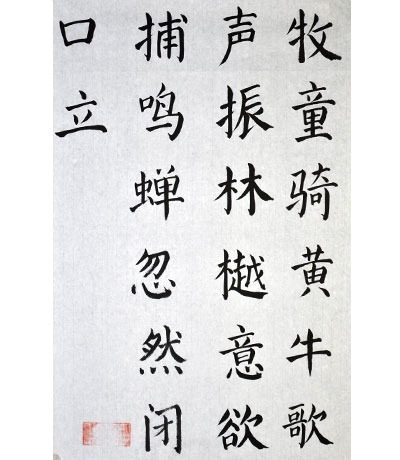 牧童骑黄牛歌
声振林樾意欲
捕鸣蝉忽然闭
口立